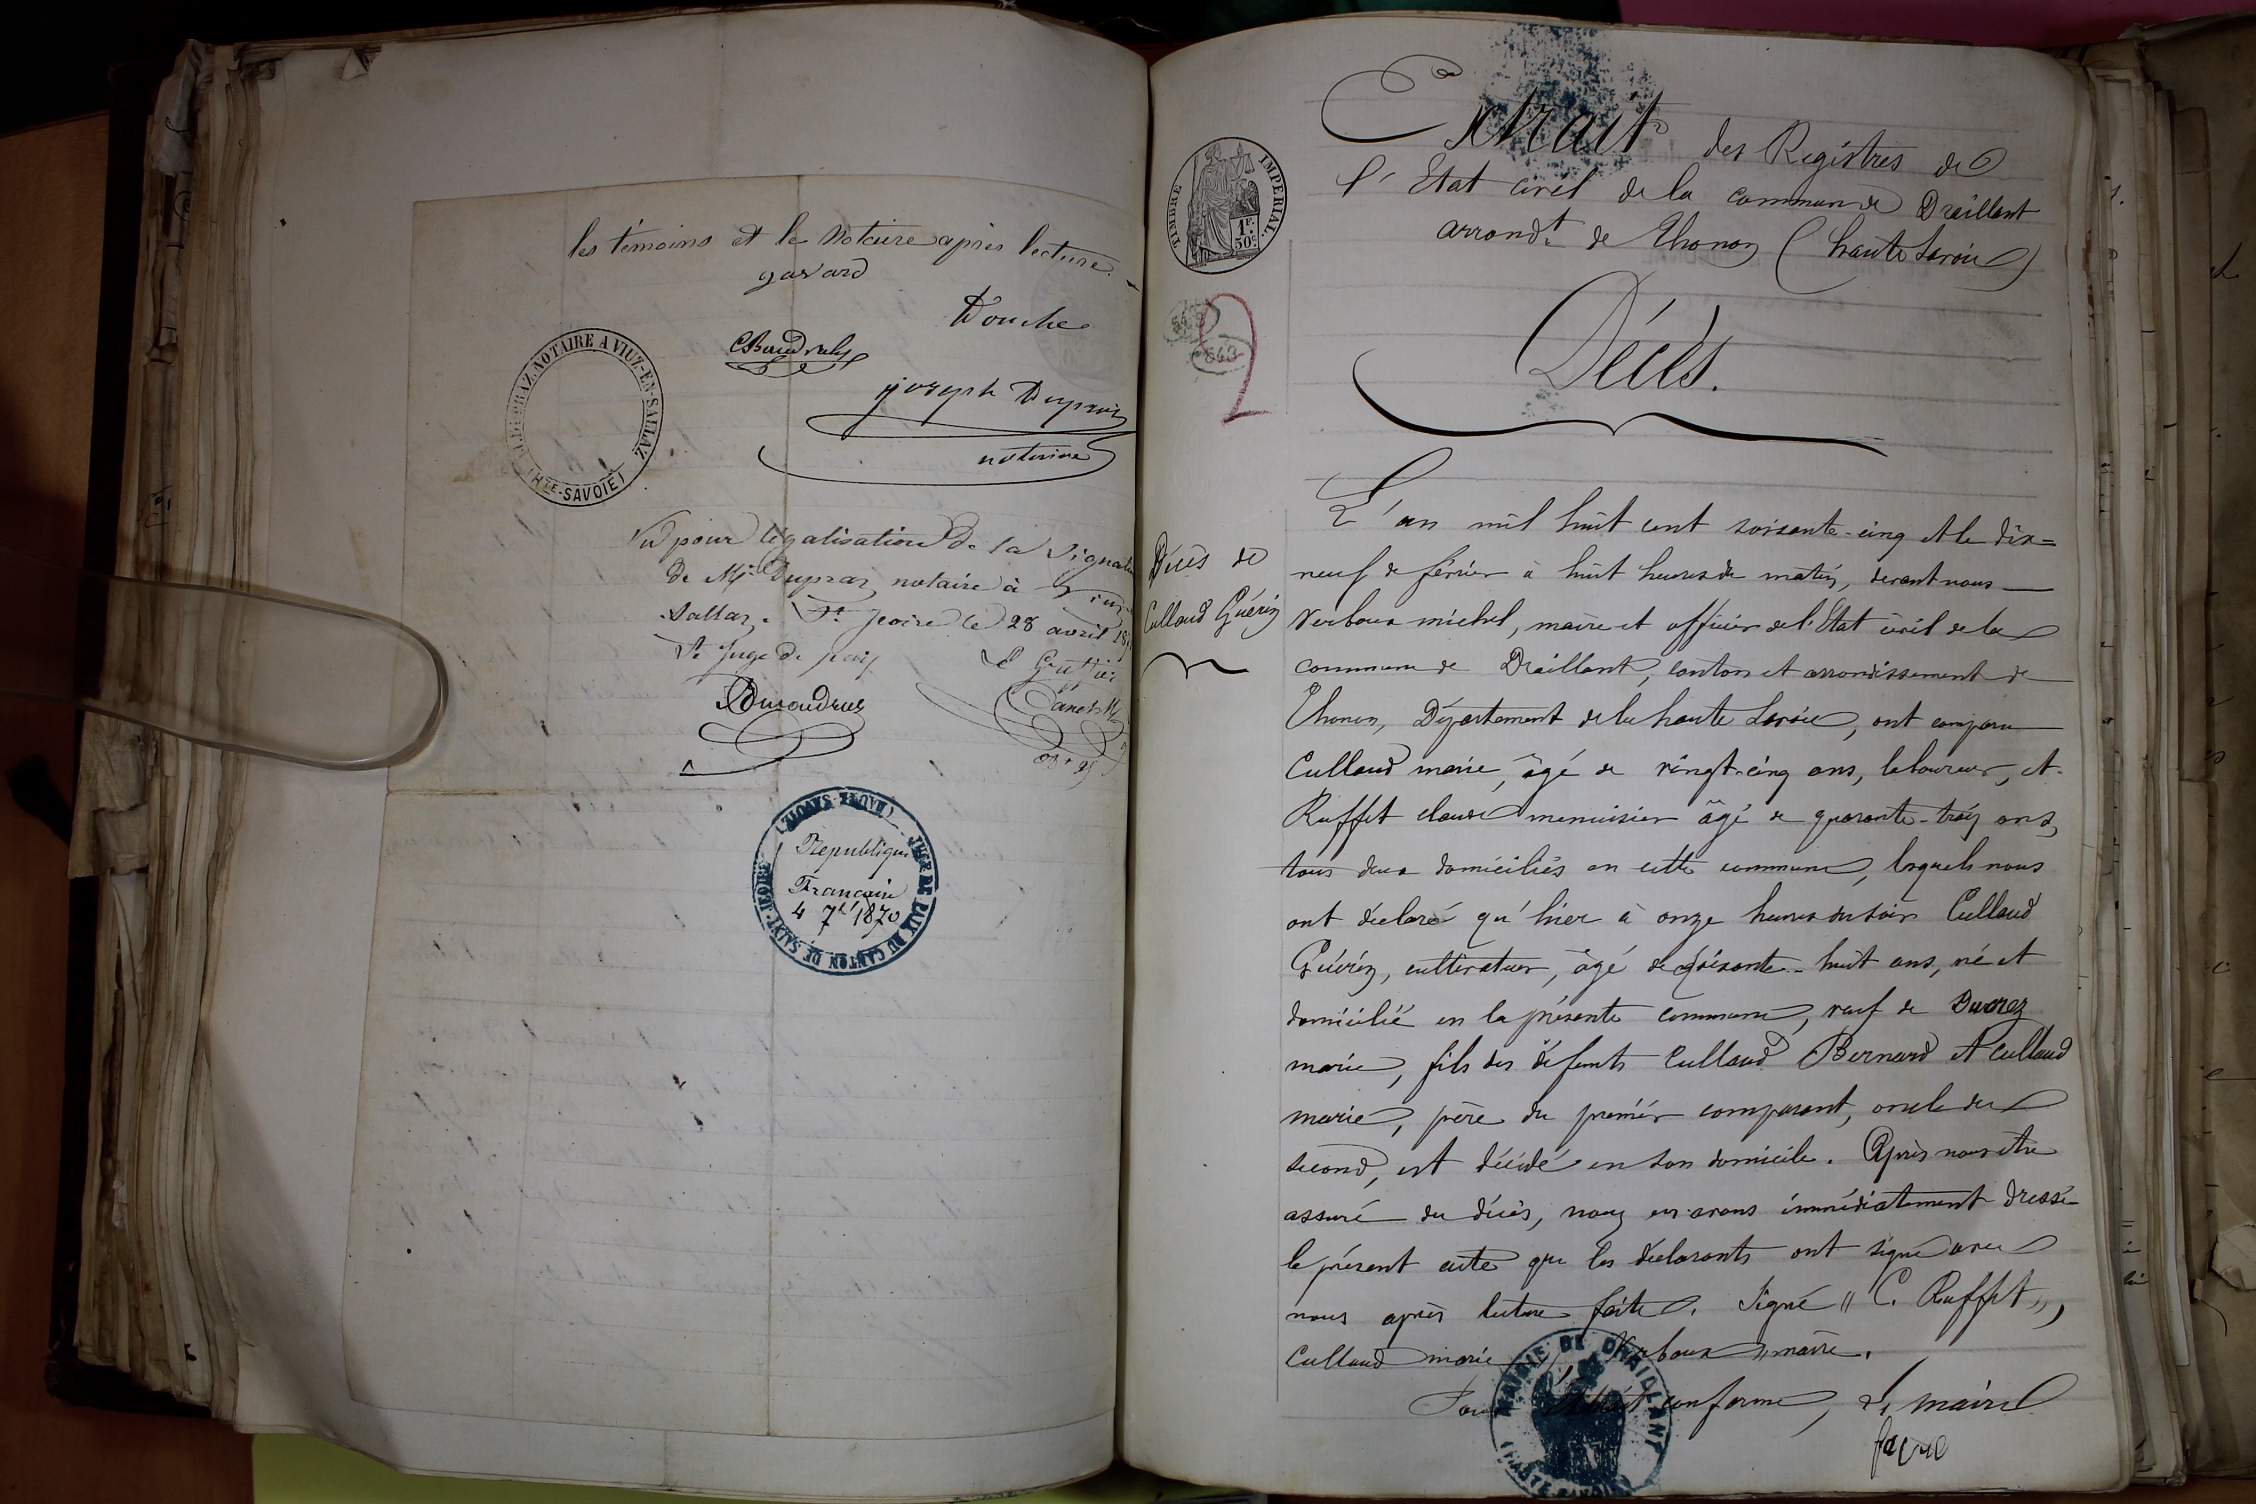 les témoins et le Notaire après lecture.
gavard
Douche
CBaudruly
joseph Dupraz
notaire
NOTAIRE A VIUZ-EN-SALLAZ
(HTE-SAVOIE)
Vu pour légalisation de la Signature
de Me Dupraz notaire à Viuz
Sallaz. St Jeoire le 28 avril
Le Juge de paix
Le Greffier
Dumoudrux
JUGE DE PAIX DU CANTON DE SAINT-JEOIRE
(HAUTE-SAVOIE)
République
Française
4 7bre 1870
Extrait des Registres de
l'Etat civil de la commune de Draillant
arrondt de Thonon (haute Savoie)
TIMBRE IMPERIAL.
1F.
50c
543
2
Décès.
Décès de
Culland Guérin
L'an mil huit cent soixante-cinq et le dix=
neuf de février à huit heures du matin, devant nous
Verboux michel, maire et officier de l'Etat civil de la
commune de Draillant, canton et arrondissement de
Thonon, Département de la haute Savoie, ont comparu
Culland marie, âgé de vingt-cinq ans, laboureur, et
Ruffet claude menuisier âgé de quarante-trois ans,
tous deux domiciliés en cette commune, lesquels nous
ont déclaré qu'hier à onze heures du soir Culland
Guérin, cultivateur, âgé de soixante-huit ans, né et
domicilié en la présente commune, veuf de Duvorez
marie, fils des défunts Culland Bernard et Culland
marie, père du premier comparant, oncle du
second, est décédé en son domicile. Après nous être
assuré du décès, nous en avons immédiatement dressé
le présent acte que les déclarants ont signé avec
nous après lecture faite. Signé "C. Ruffet",
Culland marie Verboux, maire.
Pour Extrait conforme, Le maire
favre
MAIRIE DE DRAILLANT
(HAUTE-SAVOIE)